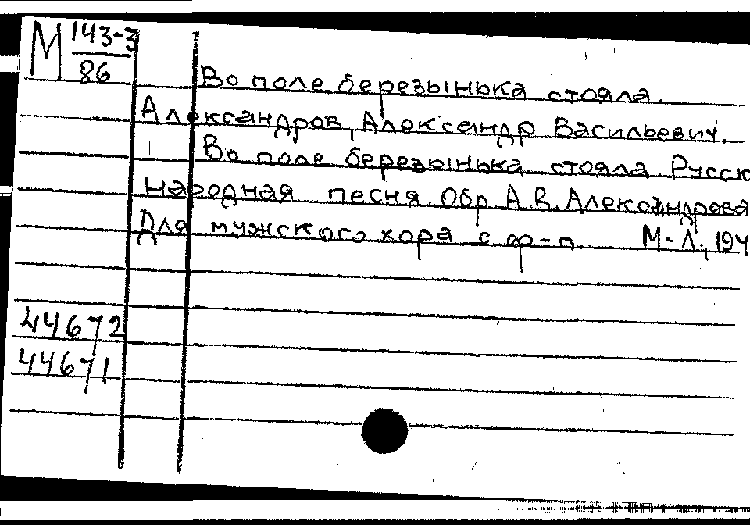 М 143-3
86
Во поле березынька стояла.
Александров, Александр Васильевич.
Во поле березынька стояла Русск
народная песня Обр. А.В. Александрова
Для мужского хора с ф-п. М-Л, 194
44672
44671